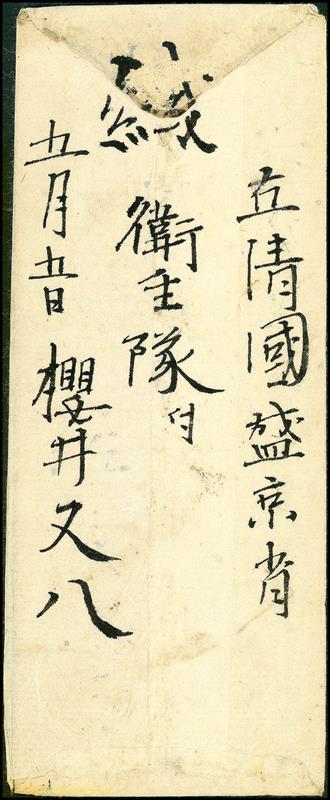 在清國盛京省
緘
衛生隊付
五月五日 櫻井又八